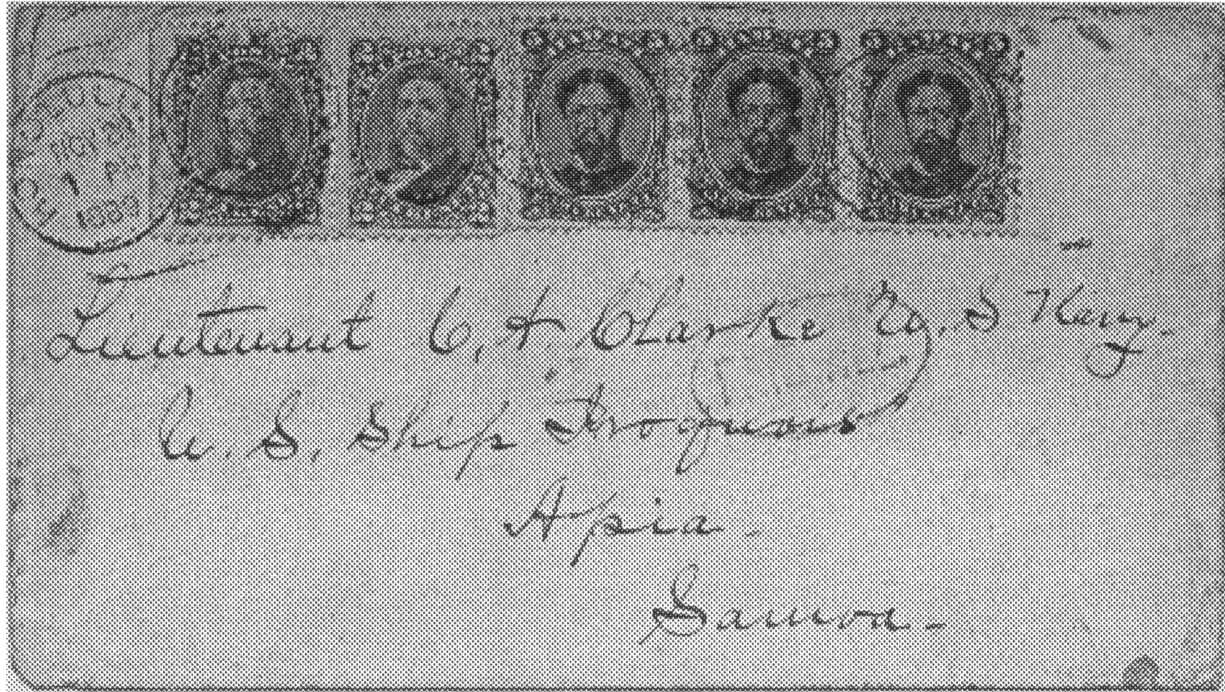 HONOLULU
NOV 24
1 PM
1889
Lieutenant C. A. Clarke U. S Navy.
U. S. Ship Iroquois
Apia.
Samoa.